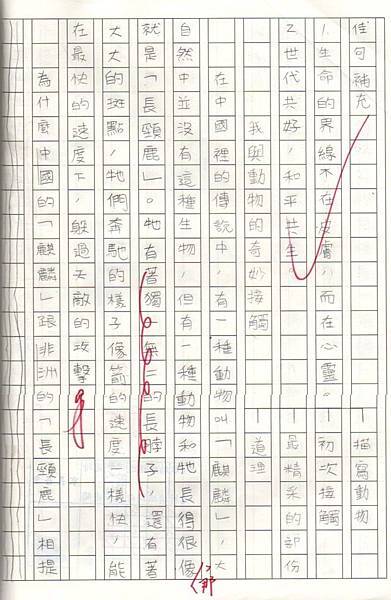 佳句補充
1.生命的界線不在皮膚，而在心靈。
2.世代共好，和平共生。
描寫動物
初次接觸
最精采的部份
道理
我與動物的奇妙接觸
在中國裡的傳說中，有一種動物叫「麒麟」，大
自然中並沒有這種生物，但有一種動物和牠長得很像
那
就是「長頸鹿」。牠有著獨一無二的長脖子，還有著
大大的斑點，牠們奔馳的樣子像箭的速度一樣快，能
在最快的速度下，躲過天敵的攻擊。
為什麼中國的「麒麟」跟非洲的「長頸鹿」相提